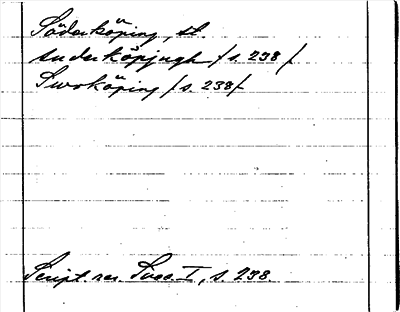 Söderköping, st.
suderköpingh / s. 238 /
Swoköping / s. 238 /
Script. rer. Svec. I, s. 238.